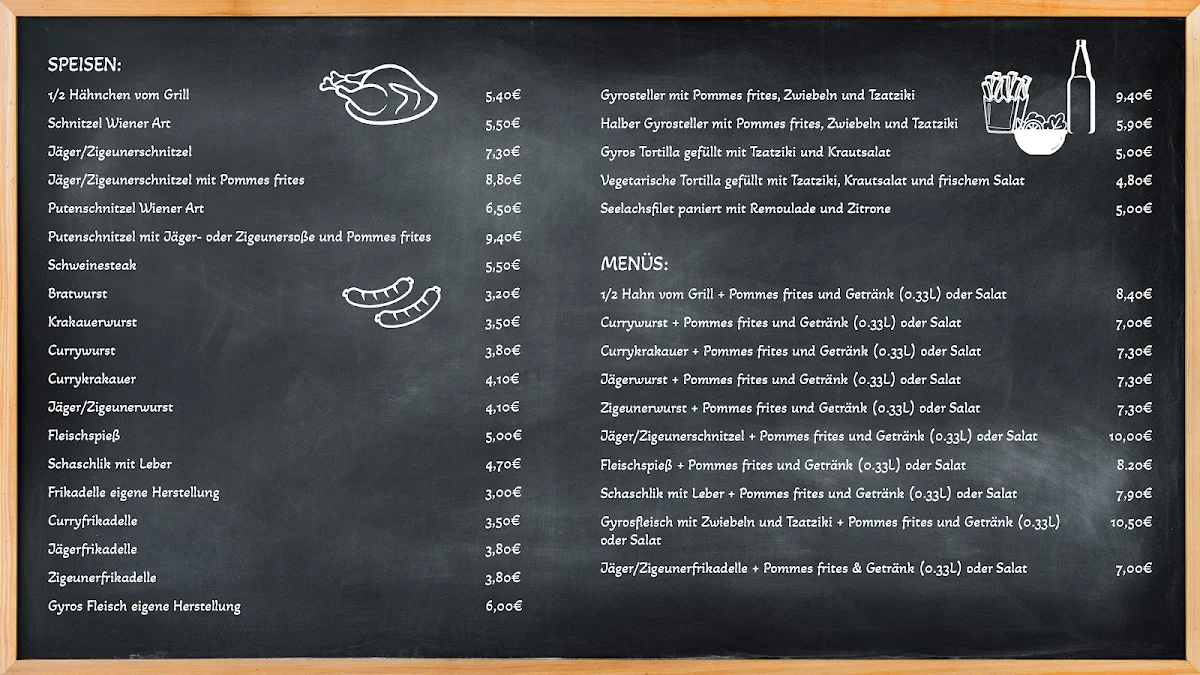 SPEISEN:
1/2 Hähnchen vom Grill 5,40€
Schnitzel Wiener Art 5,50€
Jäger/Zigeunerschnitzel 7,30€
Jäger/Zigeunerschnitzel mit Pommes frites 8,80€
Putenschnitzel Wiener Art 6,50€
Putenschnitzel mit Jäger- oder Zigeunersoße und Pommes frites 9,40€
Schweinesteak 5,50€
Bratwurst 3,20€
Krakauerwurst 3,50€
Currywurst 3,80€
Currykrakauer 4,10€
Jäger/Zigeunerwurst 4,10€
Fleischspieß 5,00€
Schaschlik mit Leber 4,70€
Frikadelle eigene Herstellung 3,00€
Curryfrikadelle 3,50€
Jägerfrikadelle 3,80€
Zigeunerfrikadelle 3,80€
Gyros Fleisch eigene Herstellung 6,00€
Gyrosteller mit Pommes frites, Zwiebeln und Tzatziki 9,40€
Halber Gyrosteller mit Pommes frites, Zwiebeln und Tzatziki 5,90€
Gyros Tortilla gefüllt mit Tzatziki und Krautsalat 5,00€
Vegetarische Tortilla gefüllt mit Tzatziki, Krautsalat und frischem Salat 4,80€
Seelachsfilet paniert mit Remoulade und Zitrone 5,00€
MENÜS:
1/2 Hahn vom Grill + Pommes frites und Getränk (0.33L) oder Salat 8,40€
Currywurst + Pommes frites und Getränk (0.33L) oder Salat 7,00€
Currykrakauer + Pommes frites und Getränk (0.33L) oder Salat 7,30€
Jägerwurst + Pommes frites und Getränk (0.33L) oder Salat 7,30€
Zigeunerwurst + Pommes frites und Getränk (0.33L) oder Salat 7,30€
Jäger/Zigeunerschnitzel + Pommes frites und Getränk (0.33L) oder Salat 10,00€
Fleischspieß + Pommes frites und Getränk (0.33L) oder Salat 8.20€
Schaschlik mit Leber + Pommes frites und Getränk (0.33L) oder Salat 7,90€
Gyrosfleisch mit Zwiebeln und Tzatziki + Pommes frites und Getränk (0.33L) 10,50€
oder Salat
Jäger/Zigeunerfrikadelle + Pommes frites & Getränk (0.33L) oder Salat 7,00€